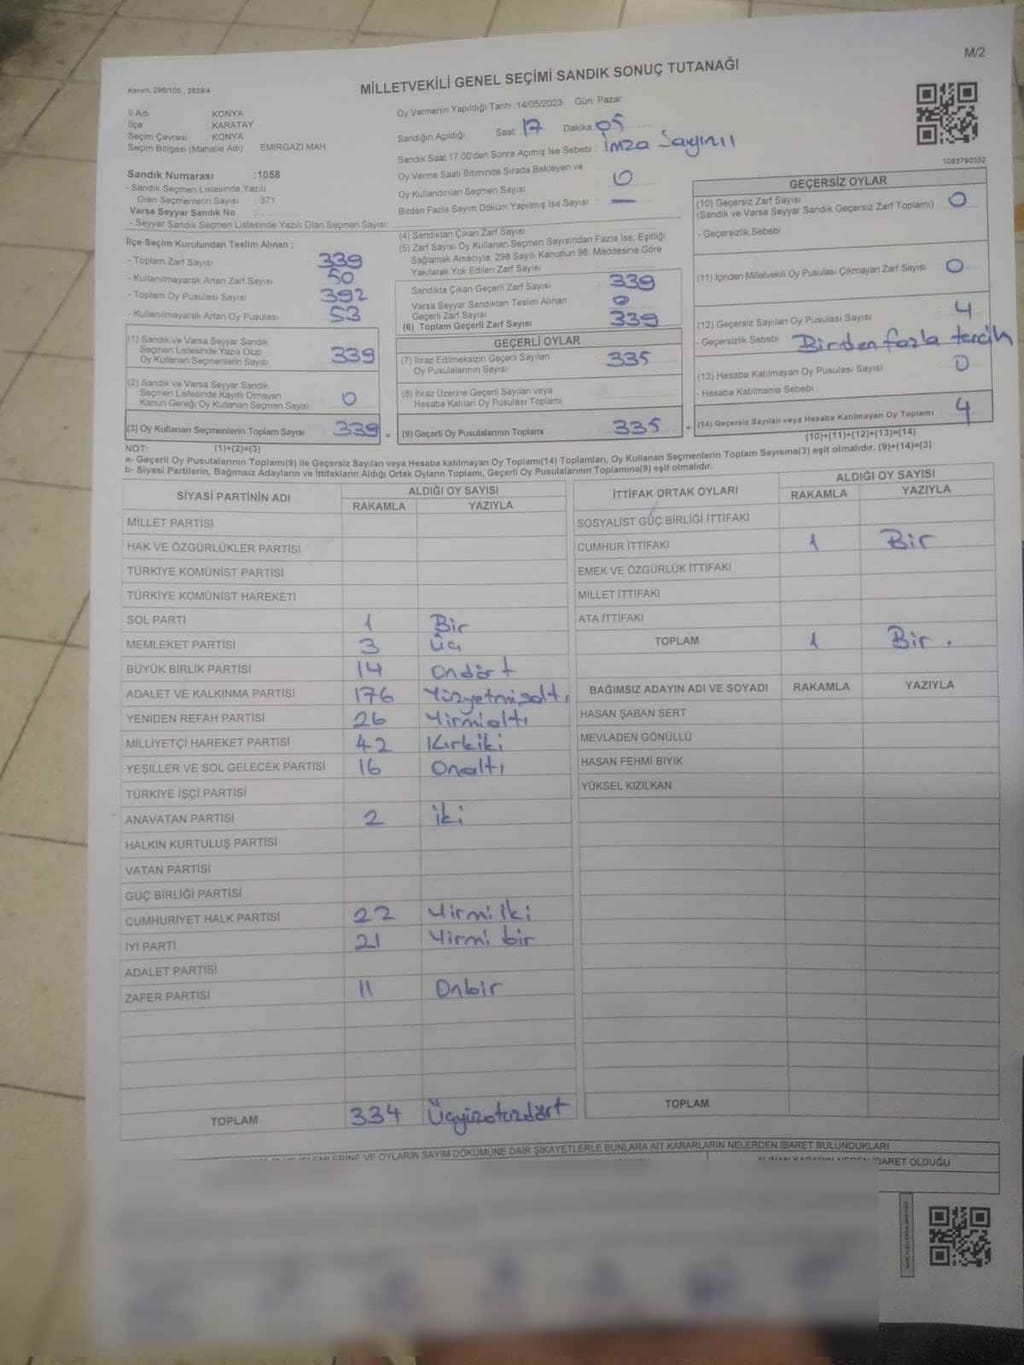 M/2
MİLLETVEKİLİ GENEL SEÇİMİ SANDIK SONUÇ TUTANAĞI
İl Adı KONYA
İlçe KARATAY
Seçim Çevresi KONYA
Seçim Bölgesi (Mahalle Adı) EMİRGAZİ MAH.
Oy Vermenin Yapıldığı Tarih :14/05/2023 Gün: Pazar
Sandığın Açıldığı Saat: 17 Dakika 05
Sandık Saat 17:00'den Sonra Açılmış İse Sebebi : İmza Sayımı
Oy Verme Saati Bitiminde Sırada Bekleyen ve
Oy Kullandırılan Seçmen Sayısı 0
Birden Fazla Sayım Döküm Yapılmış İse Sayısı —
Sandık Numarası :1058
- Sandık Seçmen Listesinde Yazılı
Olan Seçmenlerin Sayısı : 371
Varsa Seyyar Sandık No
- Seyyar Sandık Seçmen Listesinde Yazılı Olan Seçmen Sayısı:
İlçe Seçim Kurulundan Teslim Alınan ;
- Toplam Zarf Sayısı 339
- Kullanılmayarak Artan Zarf Sayısı 50
- Toplam Oy Pusulası Sayısı 392
- Kullanılmayarak Artan Oy Pusulası 53
(1) Sandık ve Varsa Seyyar Sandık
Seçmen Listesinde Yazılı Olup
Oy Kullanan Seçmenlerin Sayısı 339
(2) Sandık ve Varsa Seyyar Sandık
Seçmen Listesinde Kayıtlı Olmayan
Kanun Gereği Oy Kullanan Seçmen Sayısı 0
(3) Oy Kullanan Seçmenlerin Toplam Sayısı 339 =
(4) Sandıktan Çıkan Zarf Sayısı
(5) Zarf Sayısı Oy Kullanan Seçmen Sayısından Fazla İse, Eşitliği
Sağlamak Amacıyla, 298 Sayılı Kanunun 98. Maddesine Göre
Yakılarak Yok Edilen Zarf Sayısı
Sandıkta Çıkan Geçerli Zarf Sayısı 339
Varsa Seyyar Sandıktan Teslim Alınan
Geçerli Zarf Sayısı 0
(6) Toplam Geçerli Zarf Sayısı 339
GEÇERLİ OYLAR
(7) İtiraz Edilmeksizin Geçerli Sayılan
Oy Pusulalarının Sayısı 335
(8) İtiraz Üzerine Geçerli Sayılan veya
Hesaba Katılan Oy Pusulası Toplamı
(9) Geçerli Oy Pusulalarının Toplamı 335 +
1081790352
GEÇERSİZ OYLAR
(10) Geçersiz Zarf Sayısı 0
(Sandık ve Varsa Seyyar Sandık Geçersiz Zarf Toplamı)
- Geçersizlik Sebebi
(11) İçinden Milletvekili Oy Pusulası Çıkmayan Zarf Sayısı 0
(12) Geçersiz Sayılan Oy Pusulası Sayısı 4
- Geçersizlik Sebebi Birden fazla tercih
(13) Hesaba Katılmayan Oy Pusulası Sayısı 0
- Hesaba Katılmama Sebebi
(14) Geçersiz Sayılan veya Hesaba Katılmayan Oy Toplamı 4
(10)+(11)+(12)+(13)=(14)
NOT: (1)+(2)=(3)
a- Geçerli Oy Pusulalarının Toplamı(9) ile Geçersiz Sayılan veya Hesaba katılmayan Oy Toplamı(14) Toplamları, Oy Kullanan Seçmenlerin Toplam Sayısına(3) eşit olmalıdır. (9)+(14)=(3)
b- Siyasi Partilerin, Bağımsız Adayların ve İttifakların Aldığı Ortak Oyların Toplamı, Geçerli Oy Pusulalarının Toplamına(9) eşit olmalıdır.
SİYASİ PARTİNİN ADI ALDIĞI OY SAYISI
RAKAMLA YAZIYLA
MİLLET PARTİSİ
HAK VE ÖZGÜRLÜKLER PARTİSİ
TÜRKİYE KOMÜNİST PARTİSİ
TÜRKİYE KOMÜNİST HAREKETİ
SOL PARTİ 1 Bir
MEMLEKET PARTİSİ 3 Üç
BÜYÜK BİRLİK PARTİSİ 14 Ondört
ADALET VE KALKINMA PARTİSİ 176 Yüzyetmişaltı
YENİDEN REFAH PARTİSİ 26 Yirmialtı
MİLLİYETÇİ HAREKET PARTİSİ 42 Kırkiki
YEŞİLLER VE SOL GELECEK PARTİSİ 16 Onaltı
TÜRKİYE İŞÇİ PARTİSİ
ANAVATAN PARTİSİ 2 iki
HALKIN KURTULUŞ PARTİSİ
VATAN PARTİSİ
GÜÇ BİRLİĞİ PARTİSİ
CUMHURİYET HALK PARTİSİ 22 Yirmi iki
İYİ PARTİ 21 Yirmi bir
ADALET PARTİSİ
ZAFER PARTİSİ 11 Onbir
TOPLAM 334 Üçyüzotuzdört
İTTİFAK ORTAK OYLARI ALDIĞI OY SAYISI
RAKAMLA YAZIYLA
SOSYALİST GÜÇ BİRLİĞİ İTTİFAKI
CUMHUR İTTİFAKI 1 Bir
EMEK VE ÖZGÜRLÜK İTTİFAKI
MİLLET İTTİFAKI
ATA İTTİFAKI
TOPLAM 1 Bir .
BAĞIMSIZ ADAYIN ADI VE SOYADI RAKAMLA YAZIYLA
HASAN ŞABAN SERT
MEVLADEN GÖNÜLLÜ
HASAN FEHMİ BIYIK
YÜKSEL KIZILKAN
TOPLAM
VE OYLARIN SAYIM DÖKÜMÜNE DAİR ŞİKAYETLERLE BUNLARA AİT KARARLARIN NELERDEN İBARET BULUNDUKLARI
İBARET OLDUĞU